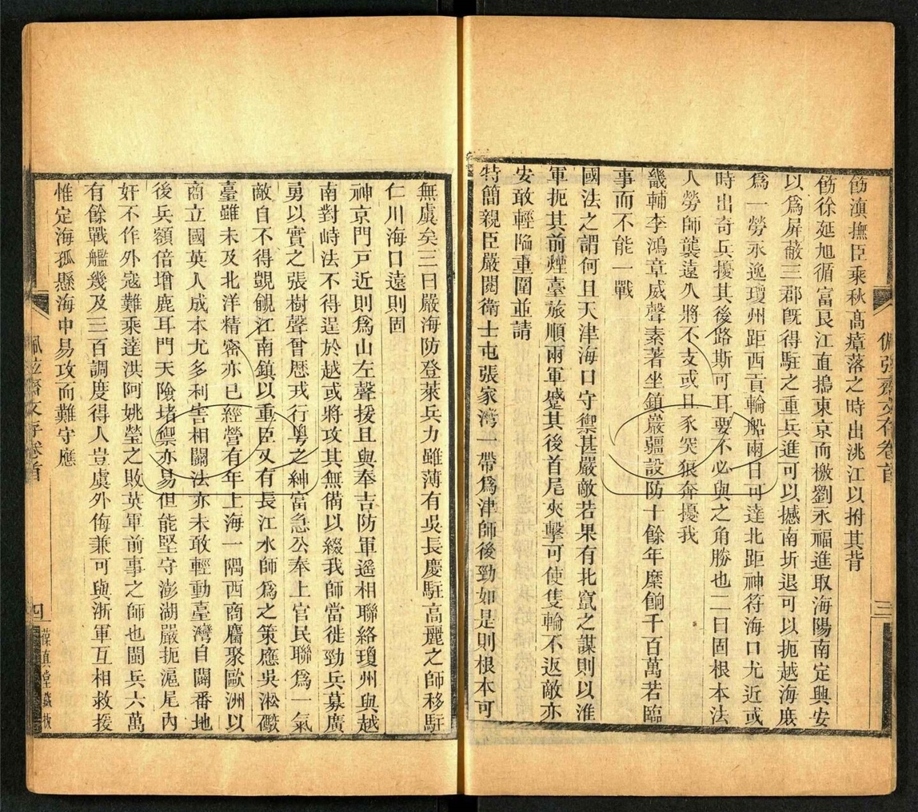 飭滇撫臣乘秋高瘴落之時出洮江以拊其背
飭徐延旭循富良江直搗東京而檄劉永福進取海陽南定興安
以為屏蔽三郡旣得駐之重兵進可以撼南圻退可以扼越海庶
為一勞永逸瓊州距西貢輪船兩日可達北距神符海口尤近或
時出奇兵擾其後路斯可耳要不必與之角勝也二曰固根本法
人勞師襲遠久將不支或且豕突狠奔擾我
畿輔李鴻章威聲素著坐鎮巖疆設防十餘年糜餉千百萬若臨
事而不能一戰
國法之謂何且天津海口守禦甚嚴敵若果有北竄之謀則以淮
軍扼其前煙臺旅順兩軍蹙其後首尾夾擊可使隻輪不返敵亦
安敢輕臨重圍並請
特簡親臣嚴閱衛士屯張家灣一帶為津師後勁如是則根本可
佩弦齋文存卷首
三
無虞矣三曰嚴海防登萊兵力雖薄有吳長慶駐高麗之師移駐
仁川海口遠則固
神京門戸近則為山左聲援且與奉吉防軍遥相聯絡瓊州與越
南對峙法不得逞於越或將攻其無備以綴我師當徙勁兵募廣
勇以實之張樹聲曾歷戎行粵之紳富急公奉上官民聯為一氣
敵自不得覬覦江南鎮以重臣又有長江水師為之策應吳淞礮
臺雖未及北洋精密亦已經營有年上海一隅西商麕聚歐洲以
商立國英人成本尤多利害相關法亦未敢輕動臺灣自闢番地
後兵額倍增鹿耳門天險堵禦亦易但能堅守澎湖嚴扼滬尾內
奸不作外寇難乘達洪阿姚瑩之敗英軍前事之師也閩兵六萬
有餘戰艦幾及三百調度得人豈虞外侮兼可與浙軍互相救援
惟定海孤懸海中易攻而難守應
佩弦齋文存卷首
四